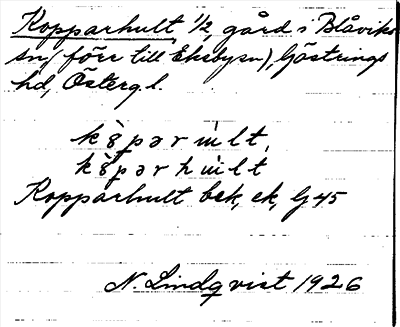 Kopparhult, 1/2, gård i Blåviks
sn, (förr till Ekebysn), Göstrings
hd, Östergl.
Kopparhult bek, ek, G 45
N. Lindqvist 1926